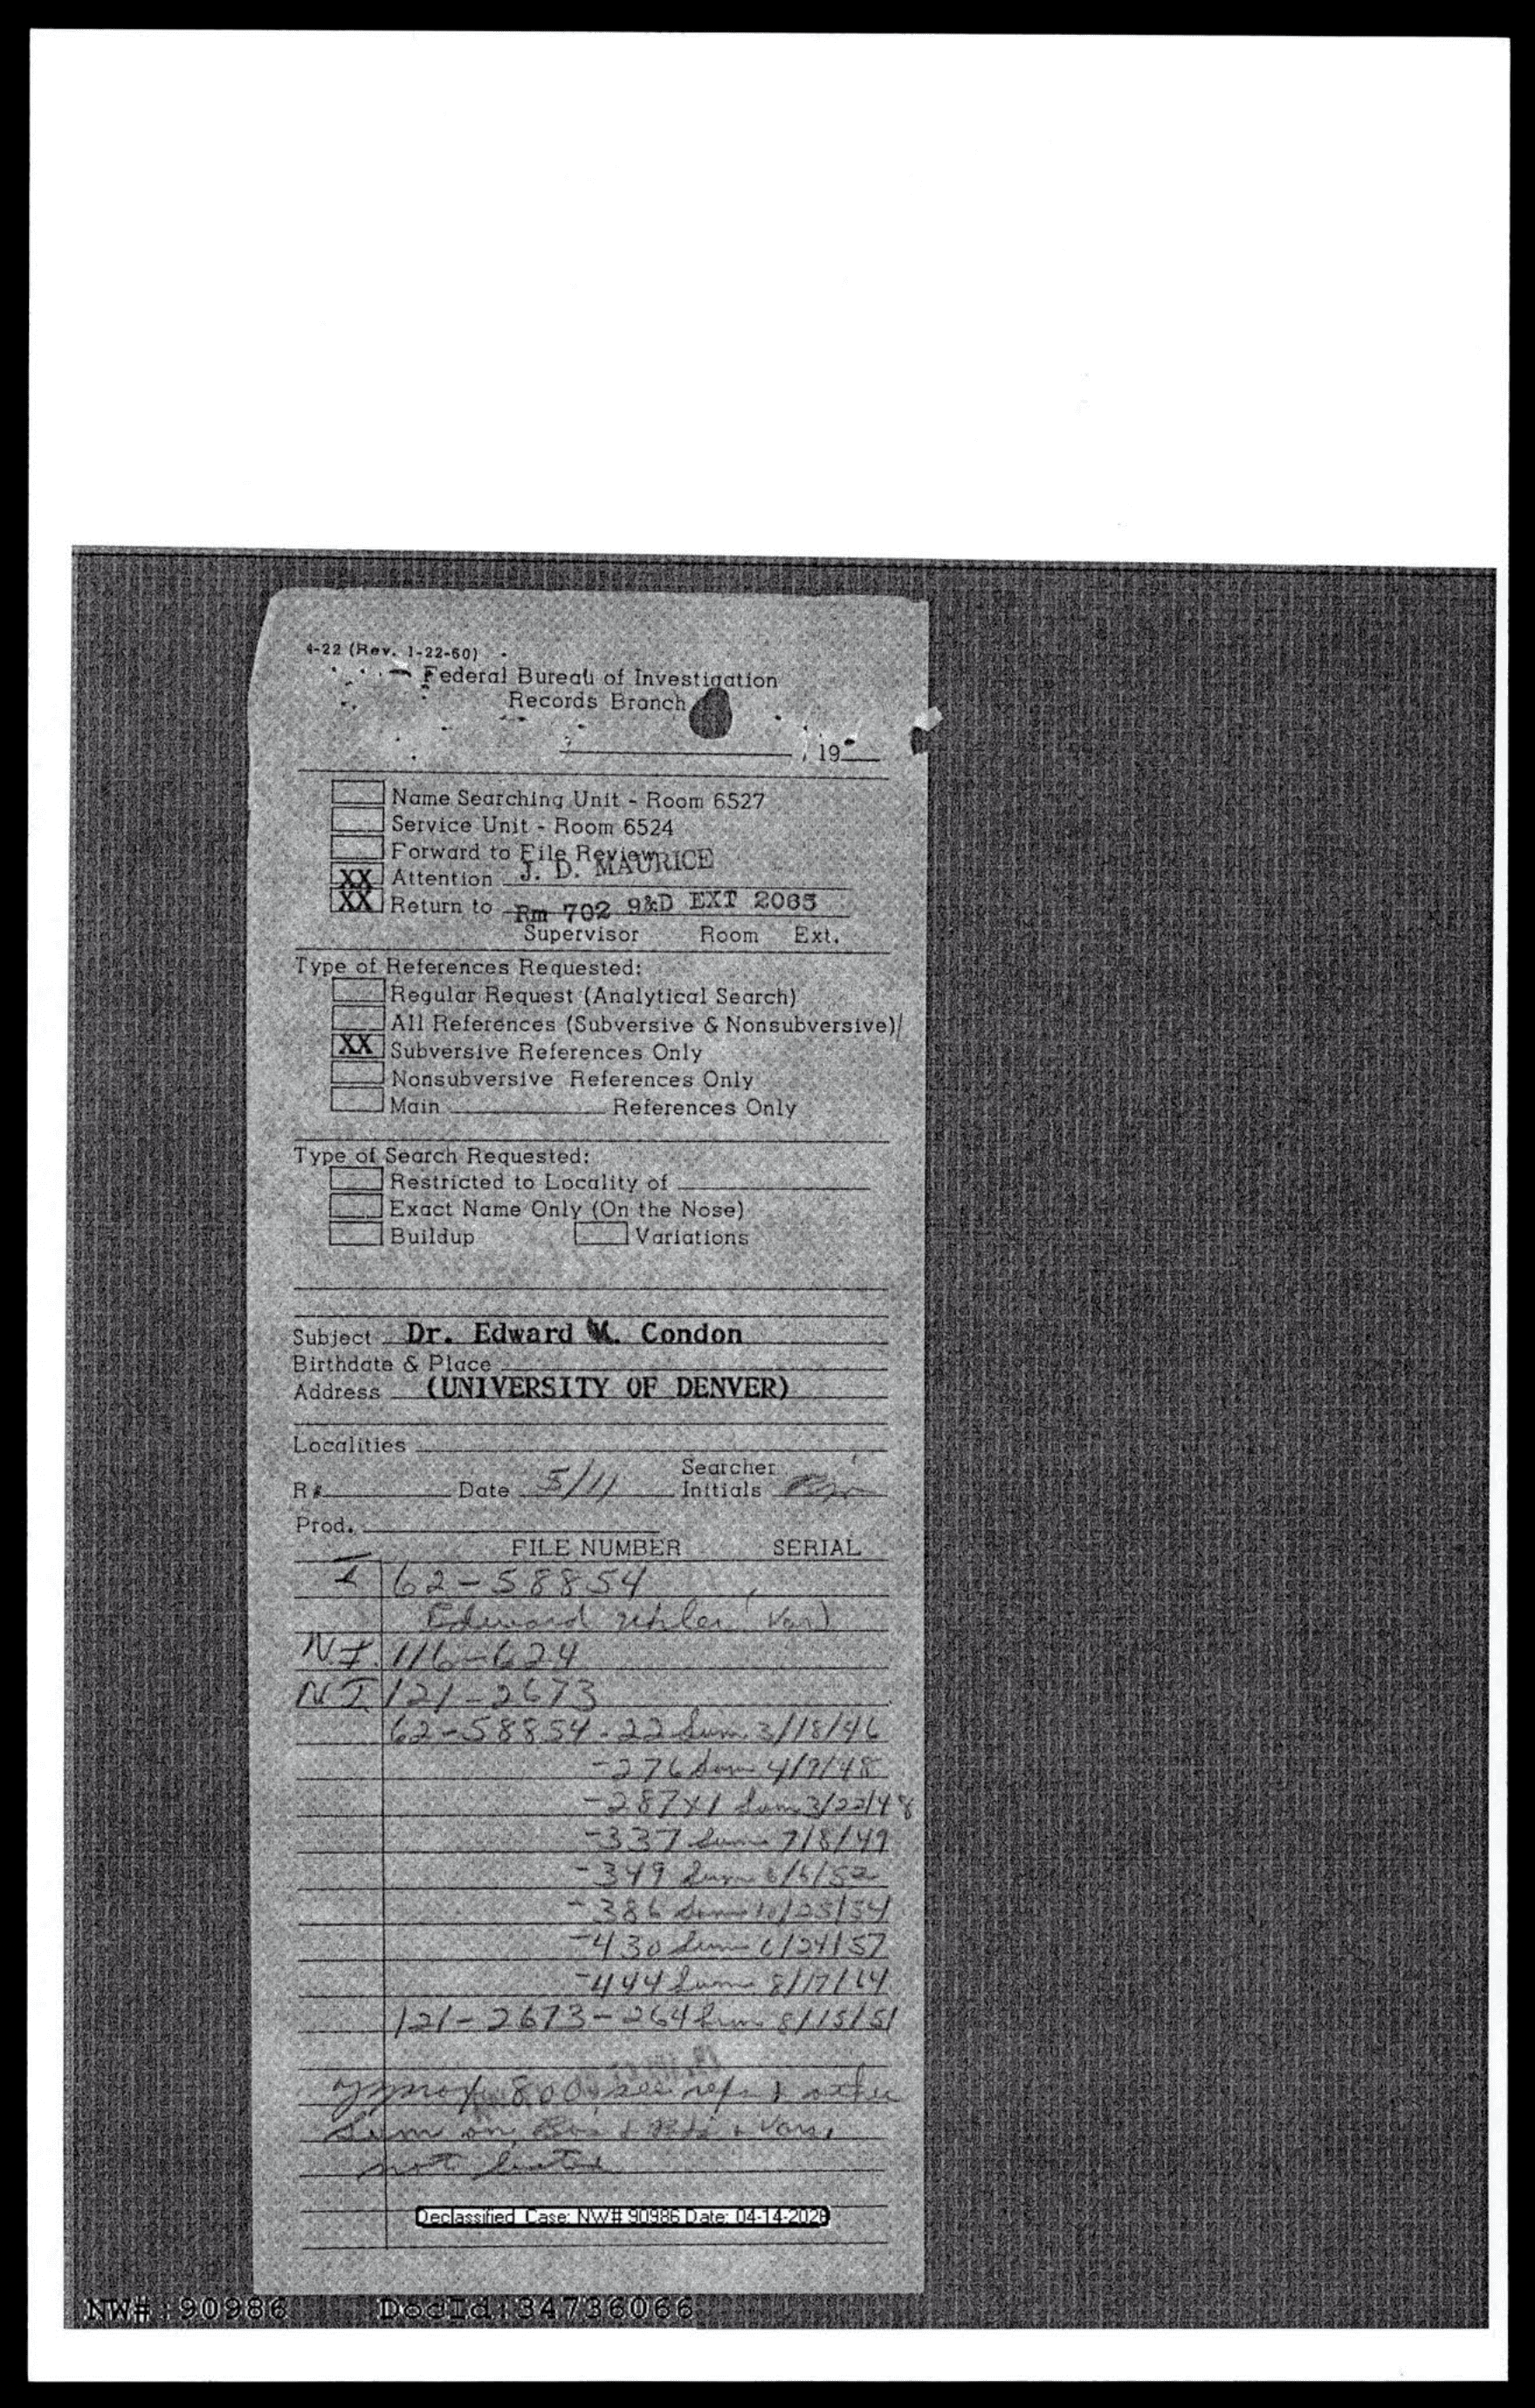 4-22 (Rev. 1-22-60)
Federal Bureau of Investigation
Records Branch
, 19
Name Searching Unit - Room 6527
Service Unit - Room 6524
Forward to File Review
XX Attention J. D. MAURICE
XX Return to Rm 702 9&D EXT 2065
Supervisor Room Ext.
Type of References Requested:
Regular Request (Analytical Search)
All References (Subversive & Nonsubversive)
XX Subversive References Only
Nonsubversive References Only
Main References Only
Type of Search Requested:
Restricted to Locality of
Exact Name Only (On the Nose)
Buildup Variations
Subject Dr. Edward M. Condon
Birthdate & Place
Address (UNIVERSITY OF DENVER)
Localities
Searcher
R# Date 5/11 Initials
Prod.
FILE NUMBER SERIAL
I 62-58854
Edward
N.I. 116-624
NI 121-2673
62-58854-22 Sum 3/18/46
-276 Sum 4/9/48
-287X1 Sum 3/22/48
-337 Sum 7/8/49
-349 Sum 6/6/52
-386 Sum 10/25/54
-430 Sum 6/24/57
-444 Sum 8/17/64
121-2673-264 Sum 8/15/51
approx 800 see refs & other
Sum on & Vars.
not listed
Declassified Case: NW# 90986 Date: 04-14-2026
NW#:90986 DocId:34736066